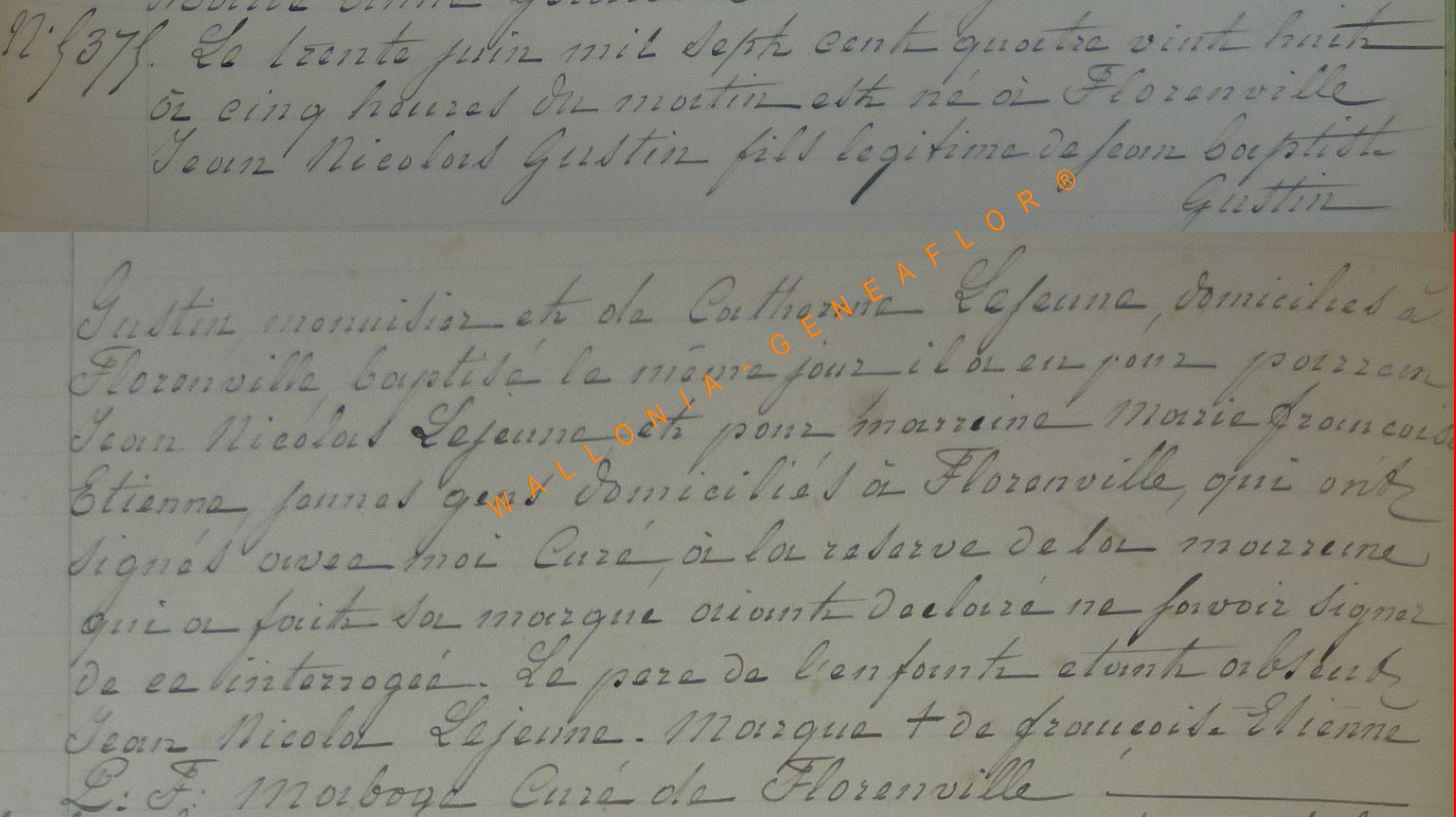 N° 5375. Le trente juin mil sept cent quatre vint huit
à cinq heures du matin est né à Florenville
Jean Nicolas Gustin fils legitime de jean baptiste
Gustin
Gustin menuisier et de Catherine Lejeune, domiciliés à
Florenville, baptisé le même jour il a eu pour parrein
Jean Nicolas Lejeune, et pour marreine Marie francoise
Etienne, jeunes gens domiciliés à Florenville, qui ont
signés avec moi Curé, à la reserve de la marreine
qui a fait sa marque aiant declaré ne savoir signer
de ce interrogée. Le pere de l'enfant etant absent
Jean Nicola Lejeune. Marque + de françoise Etienne
P: F: Maboge Curé de Florenville
WALLONIA - GENEAFLOR ®